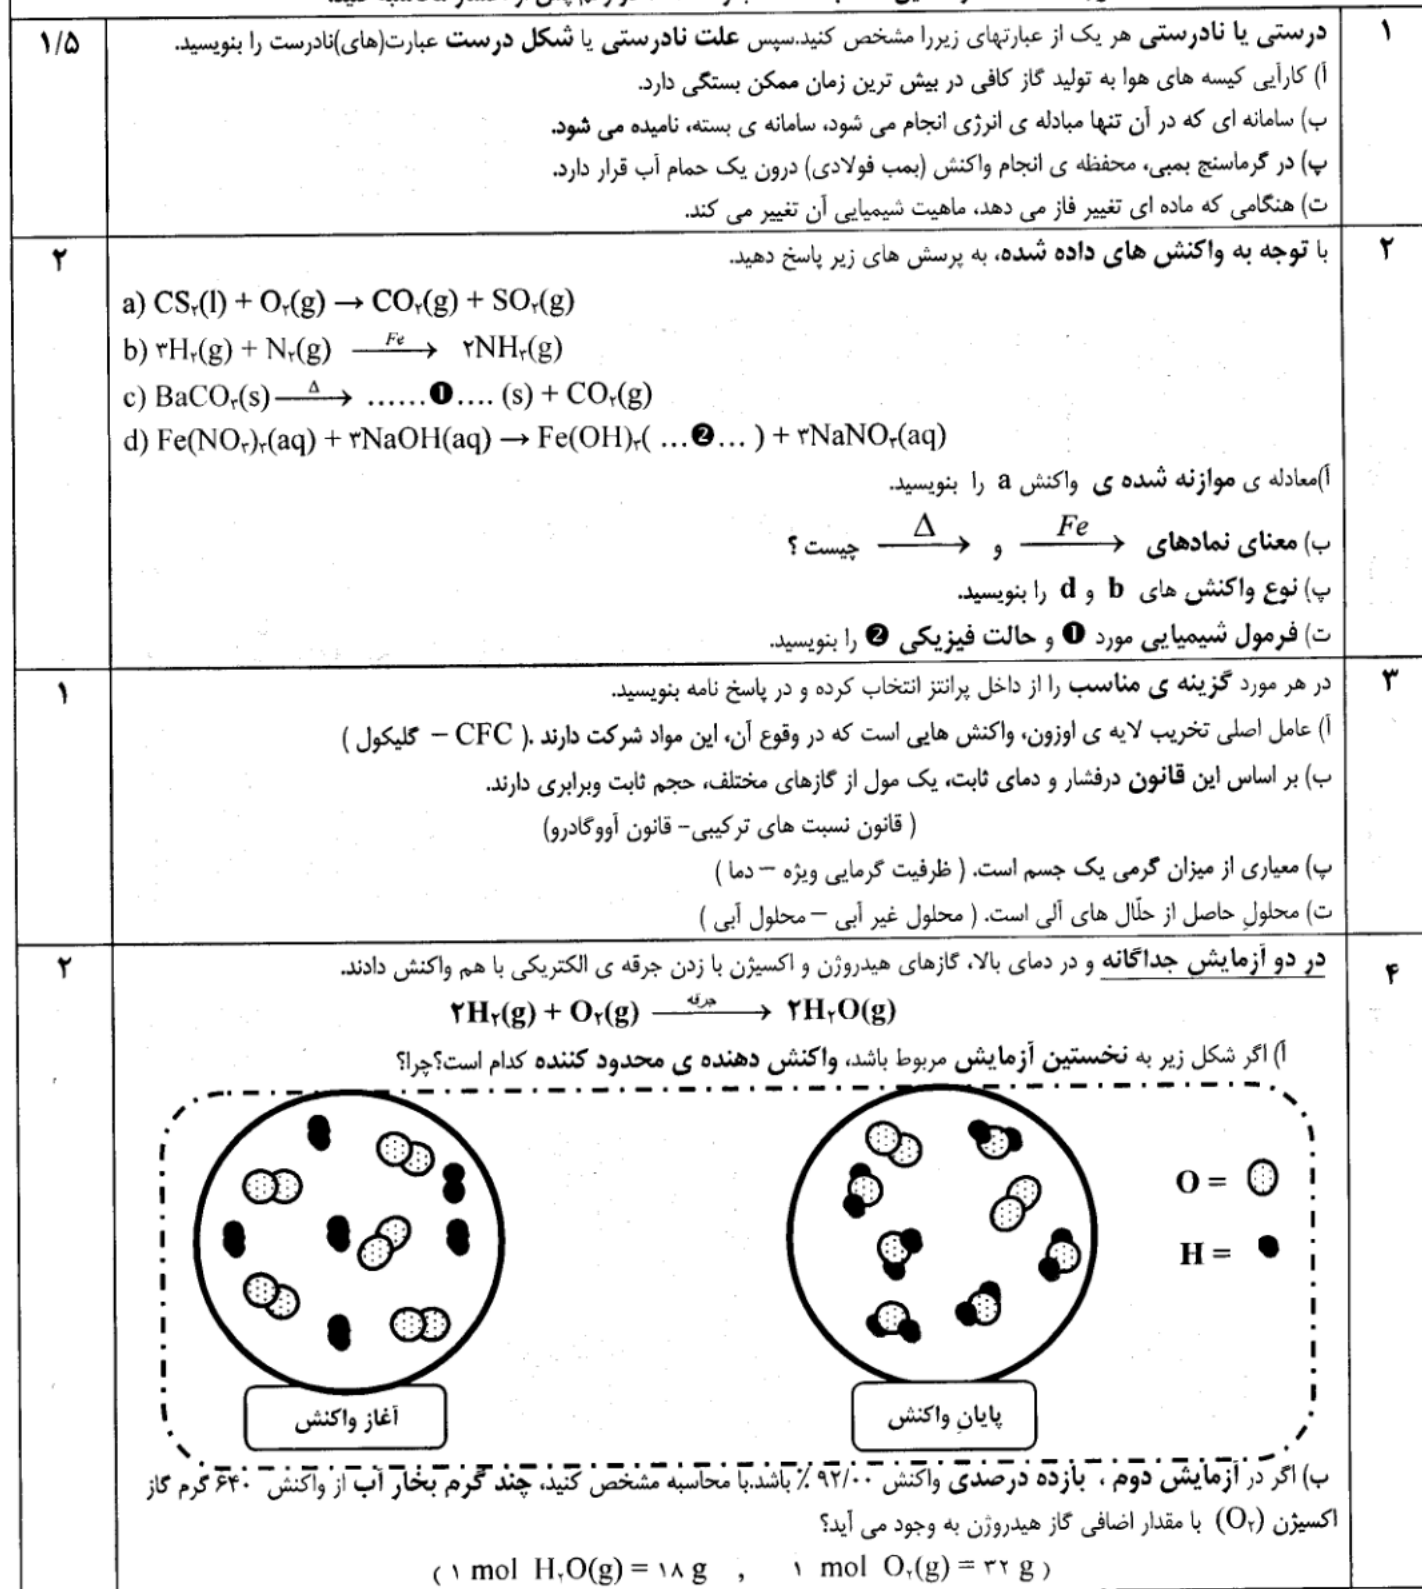 ۱
درستی یا نادرستی هر یک از عبارتهای زیررا مشخص کنید.سپس علت نادرستی یا شکل درست عبارت(های)نادرست را بنویسید.
۱/۵
آ) کارآیی کیسه های هوا به تولید گاز کافی در بیش ترین زمان ممکن بستگی دارد.
ب) سامانه ای که در آن تنها مبادله ی انرژی انجام می شود، سامانه ی بسته، نامیده می شود.
پ) در گرماسنج بمبی، محفظه ی انجام واکنش (بمب فولادی) درون یک حمام آب قرار دارد.
ت) هنگامی که ماده ای تغییر فاز می دهد، ماهیت شیمیایی آن تغییر می کند.
۲
با توجه به واکنش های داده شده، به پرسش های زیر پاسخ دهید.
۲
a) CS۲(l) + O۲(g) → CO۲(g) + SO۲(g)
b) ۳H۲(g) + N۲(g) Fe → ۲NH۳(g)
c) BaCO۳(s) Δ → ......❶.... (s) + CO۲(g)
d) Fe(NO۳)۳(aq) + ۳NaOH(aq) → Fe(OH)۳( ...❷... ) + ۳NaNO۳(aq)
آ)معادله ی موازنه شده ی واکنش a را بنویسید.
ب) معنای نمادهای Fe → و Δ → چیست ؟
پ) نوع واکنش های b و d را بنویسید.
ت) فرمول شیمیایی مورد ❶ و حالت فیزیکی ❷ را بنویسید.
۳
در هر مورد گزینه ی مناسب را از داخل پرانتز انتخاب کرده و در پاسخ نامه بنویسید.
۱
آ) عامل اصلی تخریب لایه ی اوزون، واکنش هایی است که در وقوع آن، این مواد شرکت دارند .( CFC – گلیکول )
ب) بر اساس این قانون درفشار و دمای ثابت، یک مول از گازهای مختلف، حجم ثابت وبرابری دارند.
( قانون نسبت های ترکیبی– قانون آووگادرو)
پ) معیاری از میزان گرمی یک جسم است. ( ظرفیت گرمایی ویژه – دما )
ت) محلولِ حاصل از حلّال های آلی است. ( محلول غیر آبی – محلول آبی )
۴
در دو آزمایش جداگانه و در دمای بالا، گازهای هیدروژن و اکسیژن با زدن جرقه ی الکتریکی با هم واکنش دادند.
۲
۲H۲(g) + O۲(g) جرقه → ۲H۲O(g)
آ) اگر شکل زیر به نخستین آزمایش مربوط باشد، واکنش دهنده ی محدود کننده کدام است؟چرا؟
O =
H =
آغاز واکنش
پایانِ واکنش
ب) اگر در آزمایش دوم ، بازده درصدی واکنش ۹۲/۰۰ ٪ باشد.با محاسبه مشخص کنید، چند گرم بخار آب از واکنش ۶۴۰ گرم گاز
اکسیژن (O۲) با مقدار اضافی گاز هیدروژن به وجود می آید؟
( ۱ mol H۲O(g) = ۱۸ g , ۱ mol O۲(g) = ۳۲ g )